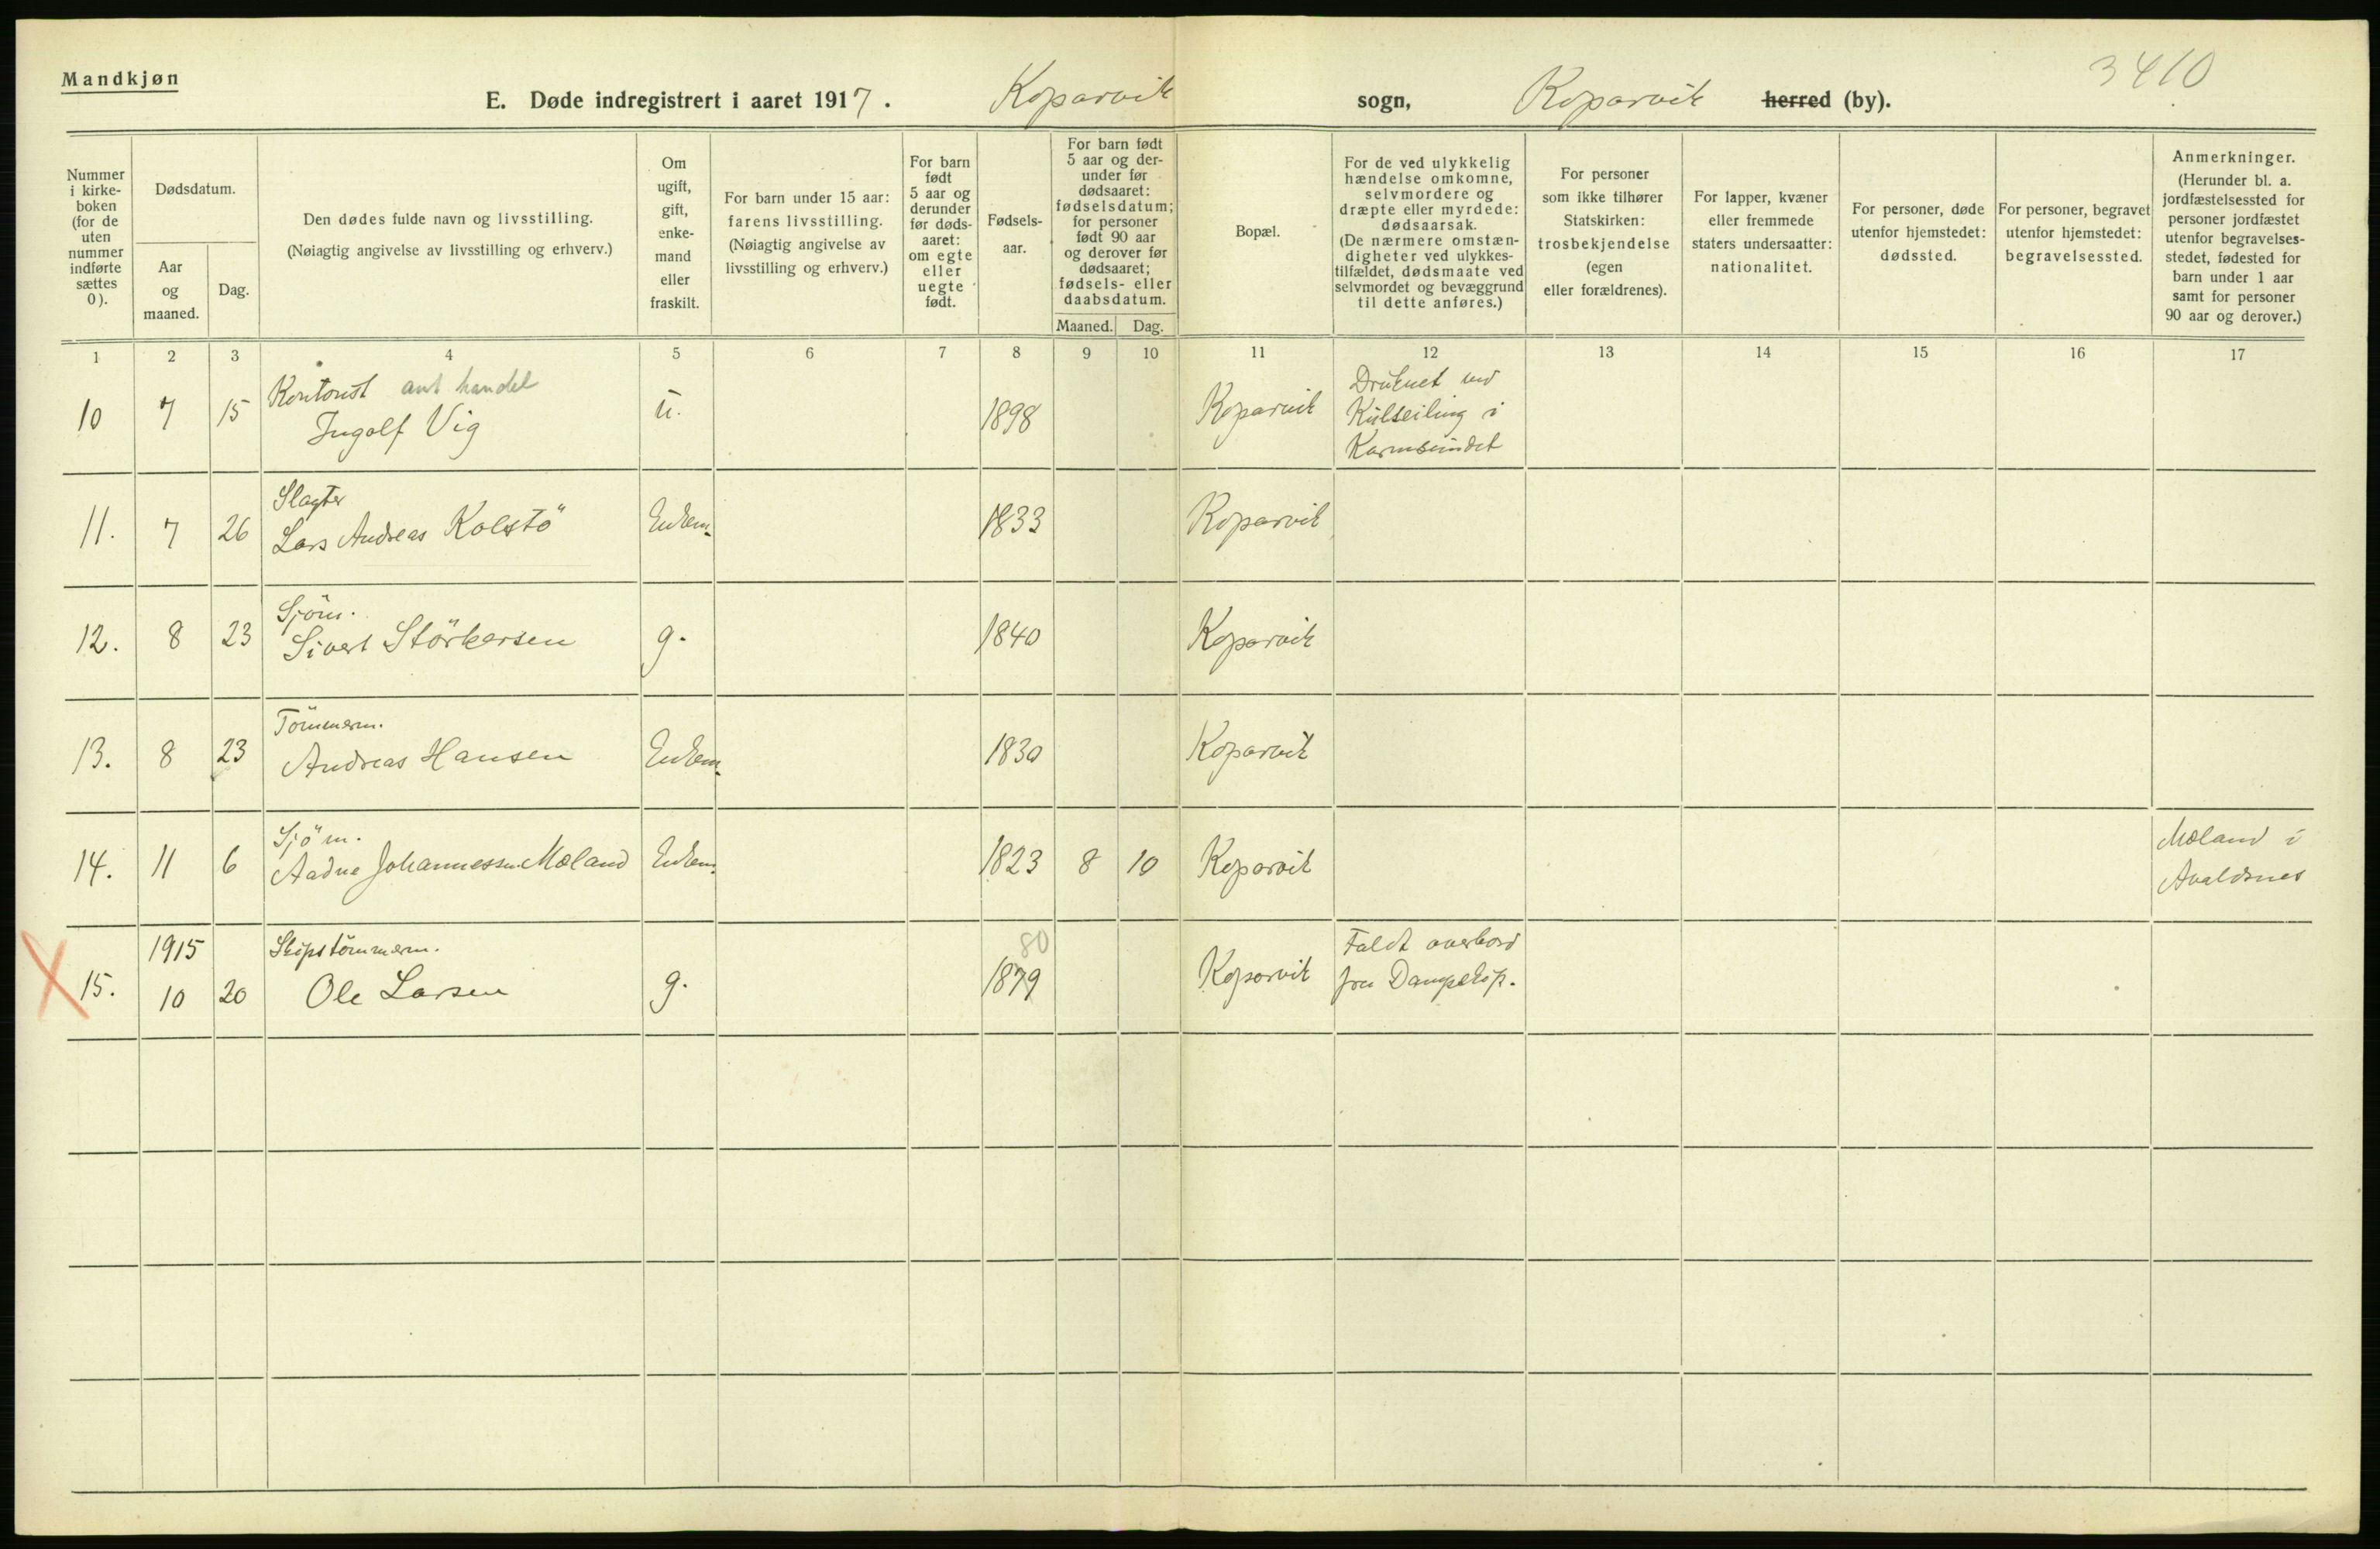 Mandkjøn
3410
E. Døde indregistrert i aaret 1917. Koparvik sogn, Koparvik herred (by).
Nummer
i kirke-
boken
(for de
uten
nummer
indførte
sættes
0).
Dødsdatum.
Aar
og
maaned.
Dag.
Den dødes fulde navn og livsstilling.
(Nøiagtig angivelse av livsstilling og erhverv.)
Om
ugift,
gift,
enke-
mand
eller
fraskilt.
For barn under 15 aar:
farens livsstilling.
(Nøiagtig angivelse av
livsstilling og erhverv.)
For barn
født
5 aar og
derunder
før døds-
aaret:
om egte
eller
uegte
født.
Fødsels-
aar.
For barn født
5 aar og der-
under før
dødsaaret:
fødselsdatum;
for personer
født 90 aar
og derover før
dødsaaret;
fødsels- eller
daabsdatum.
Maaned. Dag.
Bopæl.
For de ved ulykkelig
hændelse omkomne,
selvmordere og
dræpte eller myrdede:
dødsaarsak.
(De nærmere omstæn-
digheter ved ulykkes-
tilfældet, dødsmaate ved
selvmordet og bevæggrund
til dette anføres.)
For personer
som ikke tilhører
Statskirken:
trosbekjendelse
(egen
eller forældrenes).
For lapper, kvæner
eller fremmede
staters undersaatter:
nationalitet.
For personer, døde
utenfor hjemstedet:
dødssted.
For personer, begravet
utenfor hjemstedet:
begravelsessted.
Anmerkninger.
(Herunder bl. a.
jordfæstelsessted for
personer jordfæstet
utenfor begravelses-
stedet, fødested for
barn under 1 aar
samt for personer
90 aar og derover.)
1 2 3 4 5 6 7 8 9 10 11 12 13 14 15 16 17
Kontorist ant handel
10 7 15 Ingolf Vig u. 1898 Koparvik
Druknet ved
Kulseiling i
Karmsundet
Slagter
11. 7 26 Lars Andreas Kolstö Enkem. 1833 Koparvik
Sjöm.
12. 8 23 Sivert Störkersen g. 1840 Koparvik
Tömmerm.
13. 8 23 Andreas Hansen Enkem. 1830 Koparvik
Sjöm.
14. 11 6 Aadne Johannessen Mæland Enkem. 1823 8 10 Koparvik
Mæland i
Avaldsnes
1915 Skipstömmerm. 80
15. 10 20 Ole Larsen g. 1879 Koparvik
Faldt overbord
fra Dampskip.